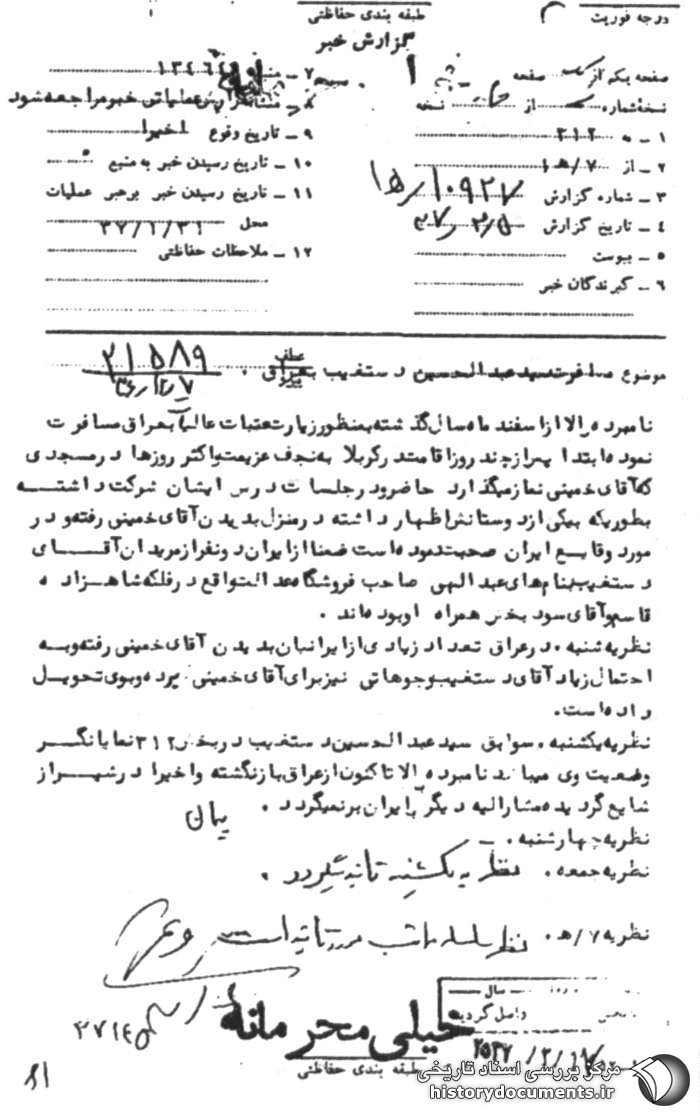 درجه فوریت
طبقه بندی حفاظتی
گزارش خبر
صفحه یکم از صفحه
نسخه شماره از نسخه
۱ ـ به ۳۱۲
۲ ـ از ۷/ﻫ
۳ ـ شماره گزارش ۱۰۹۲۷/ ۱۵ﻫ
۴ ـ تاریخ گزارش ۳۷/۲/۵
۵ ـ پیوست
۶ ـ گیرندگان خبر
۷ ـ ۱۳۴۶۴
۸ ـ منشا گزارش عملیاتی خبر مراجعه شود
۹ ـ تاریخ وقوع اخیرا
۱۰ ـ تاریخ رسیدن خبر به منبع
۱۱ ـ تاریخ رسیدن خبر برهبر عملیات
محل ۳۷/۱/۳۱
۱۲ ـ ملاحظات حفاظتی
موضوع مسافرت سیدعبدالحسین دستغیب بعراق .
۲۱۵۸۹
نامبرده بالا از اسفند ماه سال گذشته بمنظور زیارت عتبات عالیات بعراق مسافرت
نموده ابتدا پس از چند روز اقامت در کربلا به نجف عزیمت و اکثر روزها در مسجدی
که آقای خمینی نماز میگذارد حاضر و در جلسات درس ایشان شرکت داشتــه
بطوریکه بیکی از دوستانش اظهار داشته در منزل بدیدن آقای خمینی رفته و در
مورد وقایع ایران صحبت نموده است ضمنا از ایران دو نفر از مریدان آقــای
دستغیب بنام های عبدالهی صاحب فروشگاه عدالت واقع در فلکه شاهــزاده
قاسم و آقای سودبخش همراه او بوده اند .
نظریه شنبه . در عراق تعداد زیادی از ایرانیان بدیدن آقای خمینی رفته و به
احتمال زیاد آقای دستغیب وجوهاتی نیز برای آقای خمینی برده و بوی تحویل
داده است.
نظریه یکشنبه . سوابق سیدعبدالحسین دستغیب در بخش ۳۱۲ نمایانگــر
وضعیت وی میباشد نامبرده بالا تاکنون از عراق باز نگشته و اخیرا در شیــراز
شایع گردیده مشارالیه دیگر بایران برنمیگردد . پیمان
نظریه چهارشنبه . ـ
نظریه جمعه . نظریه یکشنبه تائید میگردد .
نظریه ۷/ﻫ . نظر سلسله مراتب مورد تائید است
۳۷۱۴۵
خیلی محرمانه
سال
واصل گردید
۲۵۳۷/۲/۱۷
طبقه بندی حفاظتی
۸۱
مرکز بررسی اسناد تاریخی
historydocuments.ir